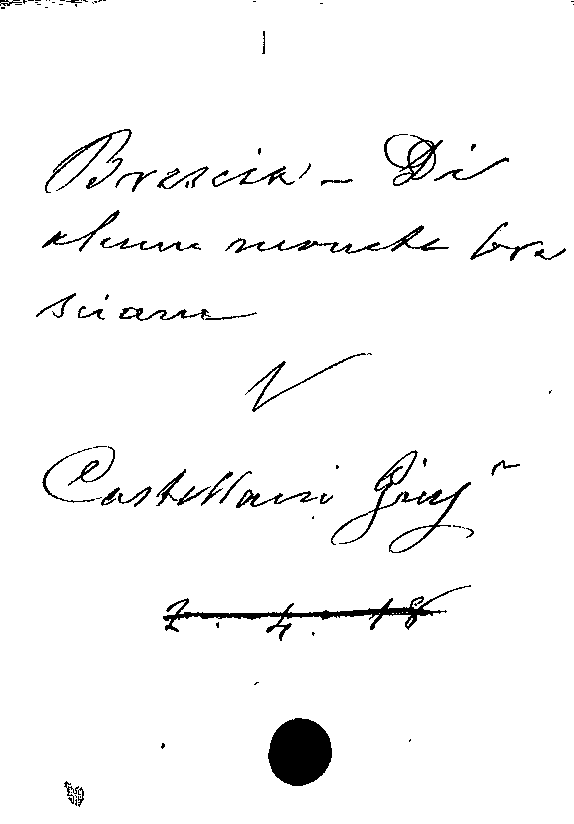 Brescia - Di
alcune monete bre
sciane
V
Castellani Gius
Z. 4. 18